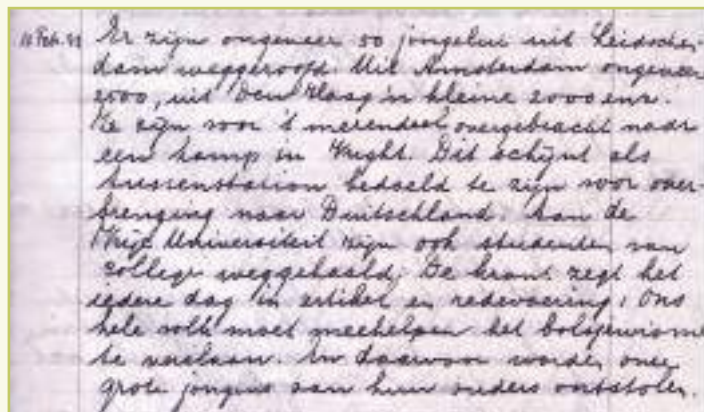 10 Feb. 43 Er zijn ongeveer 50 jongelui uit Leidschen-
dam weggeroofd. Uit Amsterdam ongeveer
2000, uit Den Haag 'n kleine 2000 enz.
Ze zijn voor 't merendeel overgebracht naar
een kamp in Vught. Dit schijnt als
tussenstation bedoeld te zijn voor over-
brenging naar Duitschland. Aan de
Vrije Universiteit zijn ook studenten van
college weggehaald. De krant zegt het
iedere dag in artikel en redevoering: Ons
hele volk moet meehelpen het bolsjewisme
te verslaan. En daarvoor worden onze
grote jongens van hun ouders ontstolen.